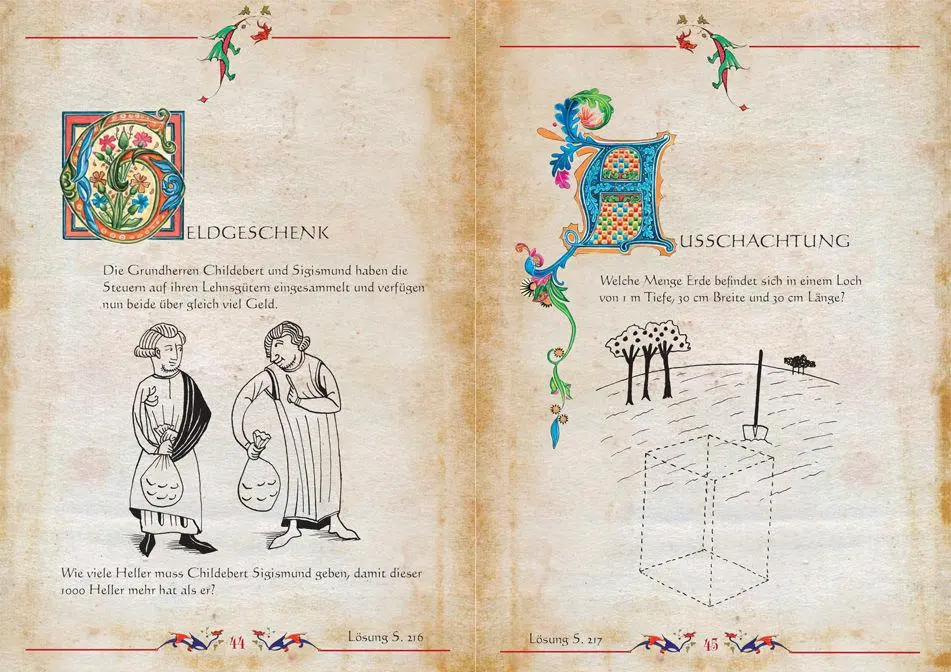 GELDGESCHENK
Die Grundherren Childebert und Sigismund haben die
Steuern auf ihren Lehnsgütern eingesammelt und verfügen
nun beide über gleich viel Geld.
Wie viele Heller muss Childebert Sigismund geben, damit dieser
1000 Heller mehr hat als er?
44
Lösung S. 216
AUSSCHACHTUNG
Welche Menge Erde befindet sich in einem Loch
von 1 m Tiefe, 30 cm Breite und 30 cm Länge?
Lösung S. 217
45